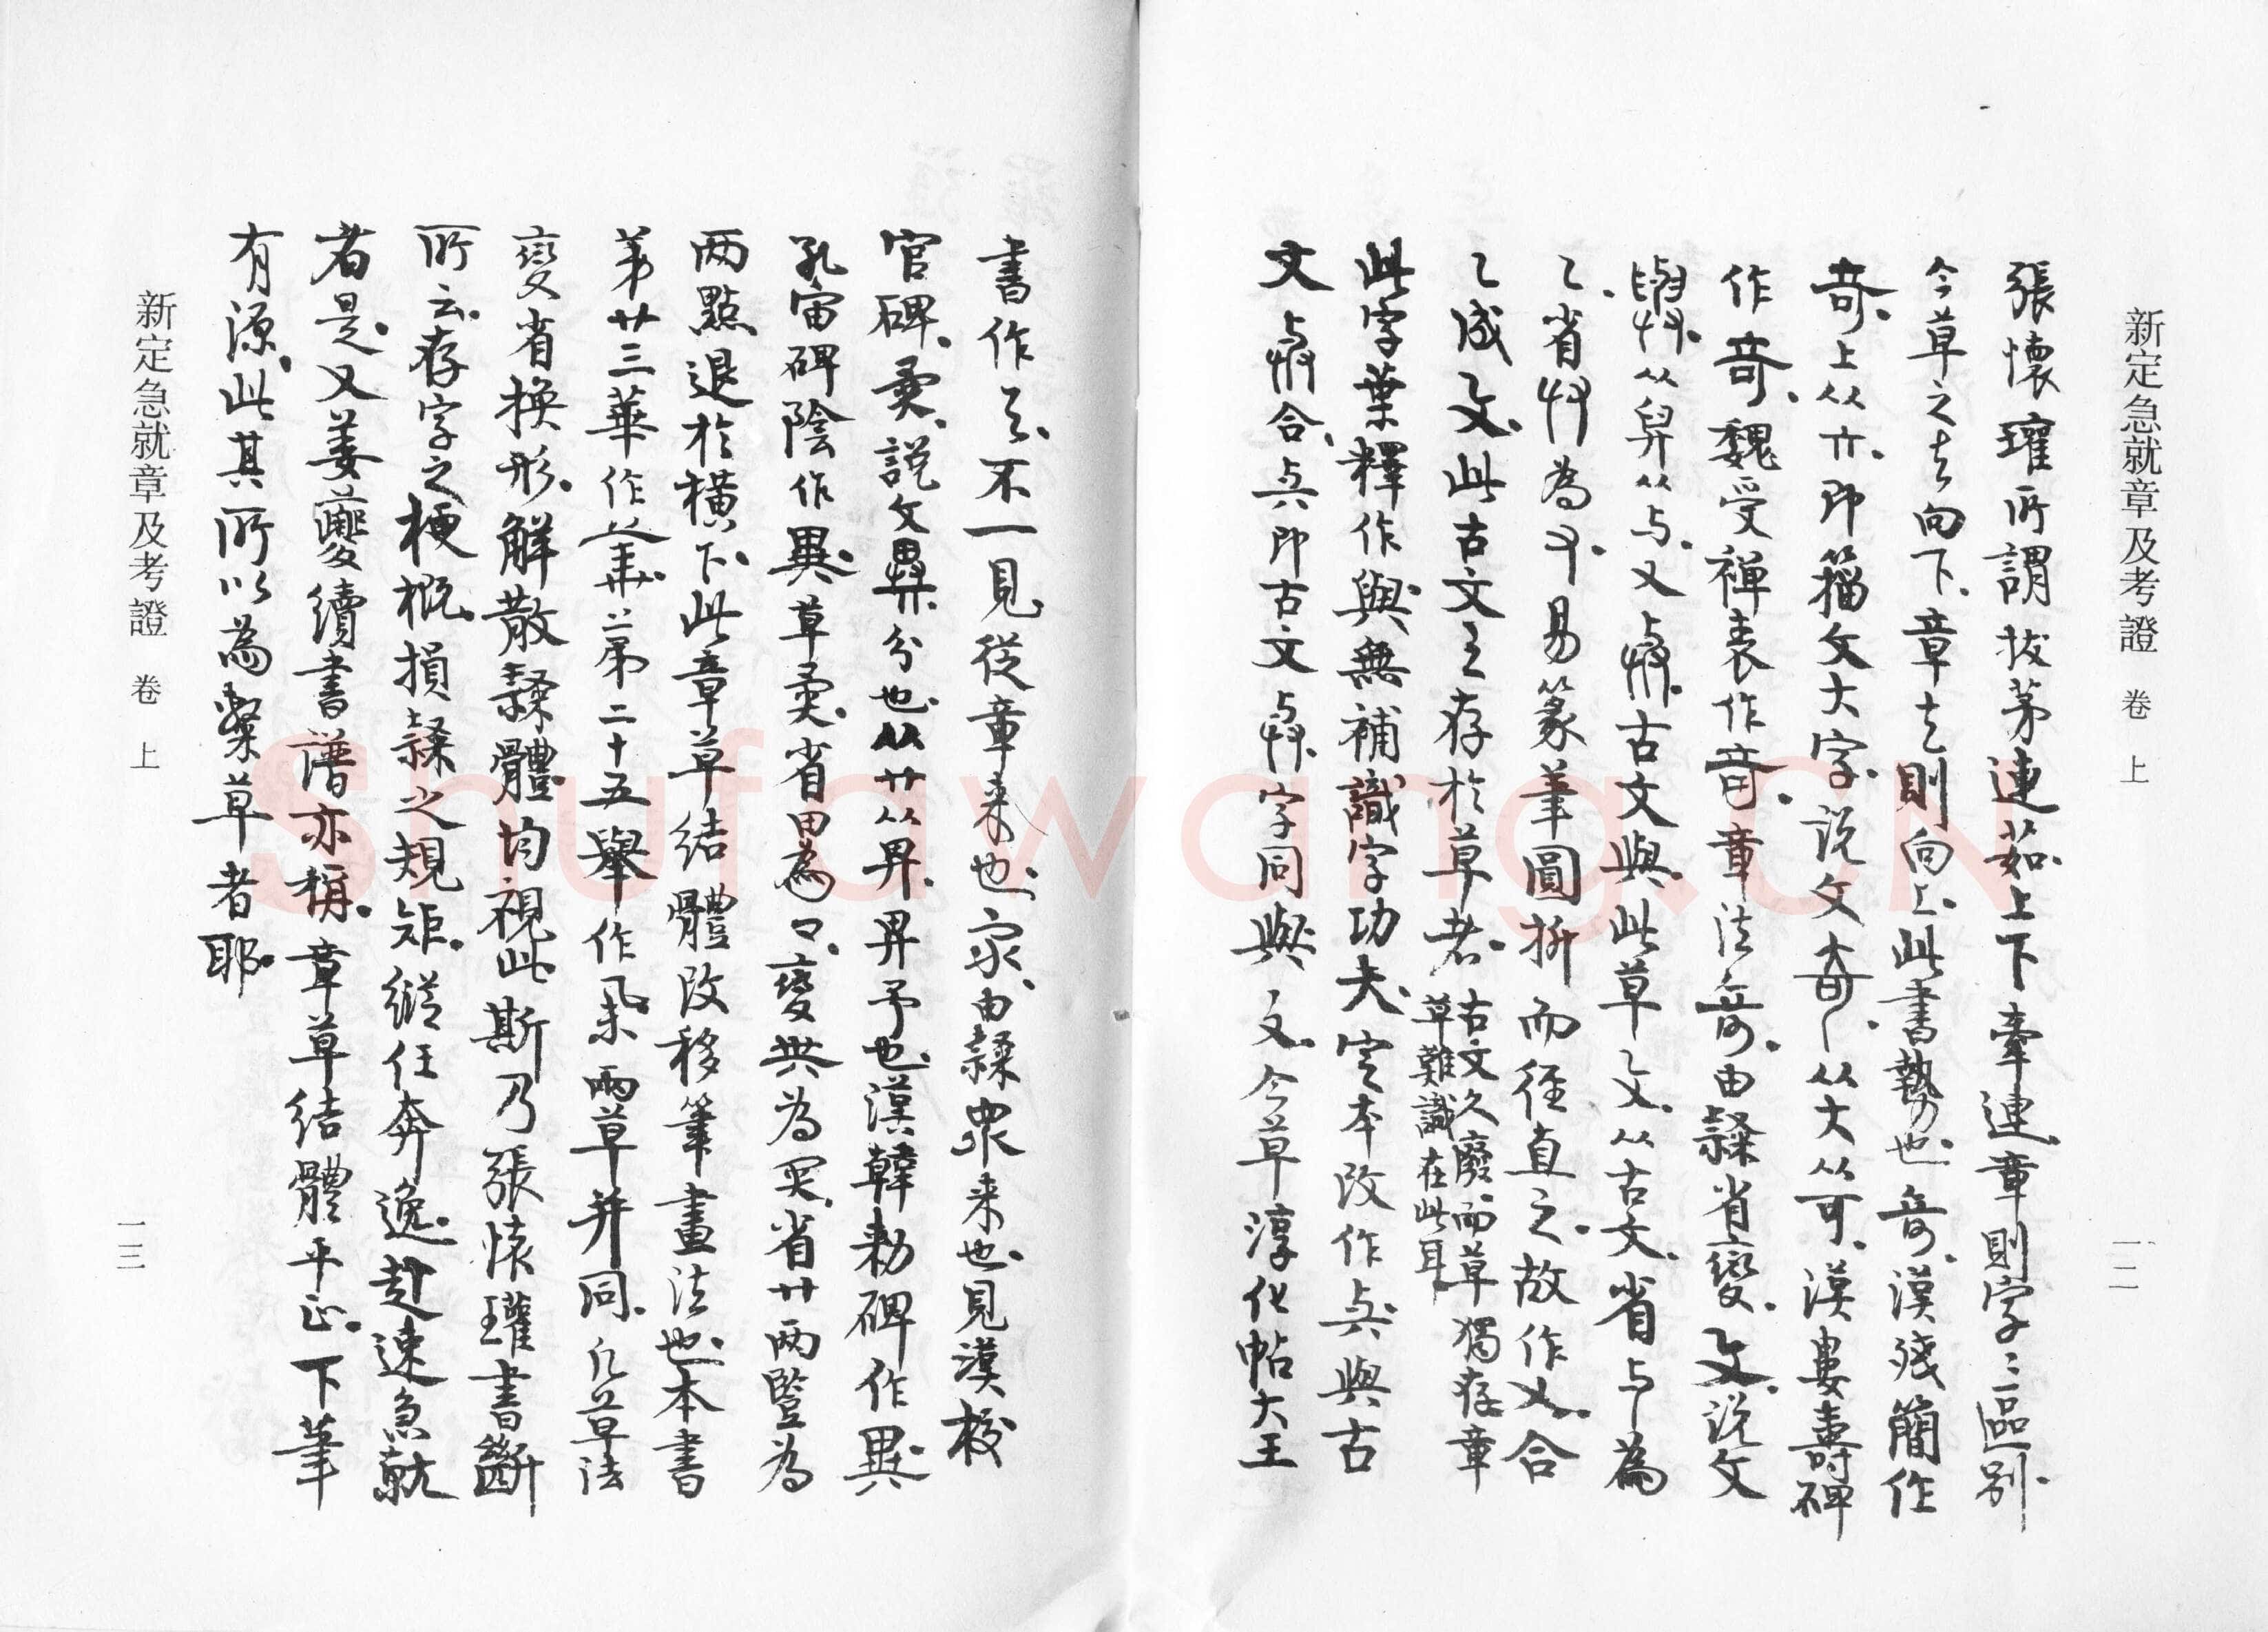 新定急就章及考證 卷上 一二
張懷瓘所謂拔茅連茹上下牽連章則字ミ區別
今草之去向下章去則向上此書勢也奇漢殘簡作
奇上从亣即籀文大字說文奇从大从可漢婁壽碑
作奇魏受禪表作奇章法奇由隸省變文說文
與从舁从与又古文與此草文从古文省与為
省為易篆筆圓折而徑直之故作又合
成文此古文之存於草者古文久廢而草獨存章
草難識在此耳
此字葉釋作與無補識字功夫定本改作与與古
文合与即古文字同與文今草淳化帖大王
書作不一見從章来也家由隸眾来也見漢校
官碑異說文異分也从廾从畀畀予也漢韓勑碑作異
孔宙碑陰作異草異省田為口變共為省廾兩豎為
两點退於橫下此章草結體改移筆畫法也本書
第廿三華作第二十五舉作兩草并同凡草法
變省換形解散隸體均視此斯乃張懷瓘書斷
所云存字之梗概損隸之規矩縱任奔逸赴速急就
者是又姜夔續書譜亦稱章草結體平正下筆
有源此其所以為槀草者耶
新定急就章及考證 卷上 一三
Shufawang.CN